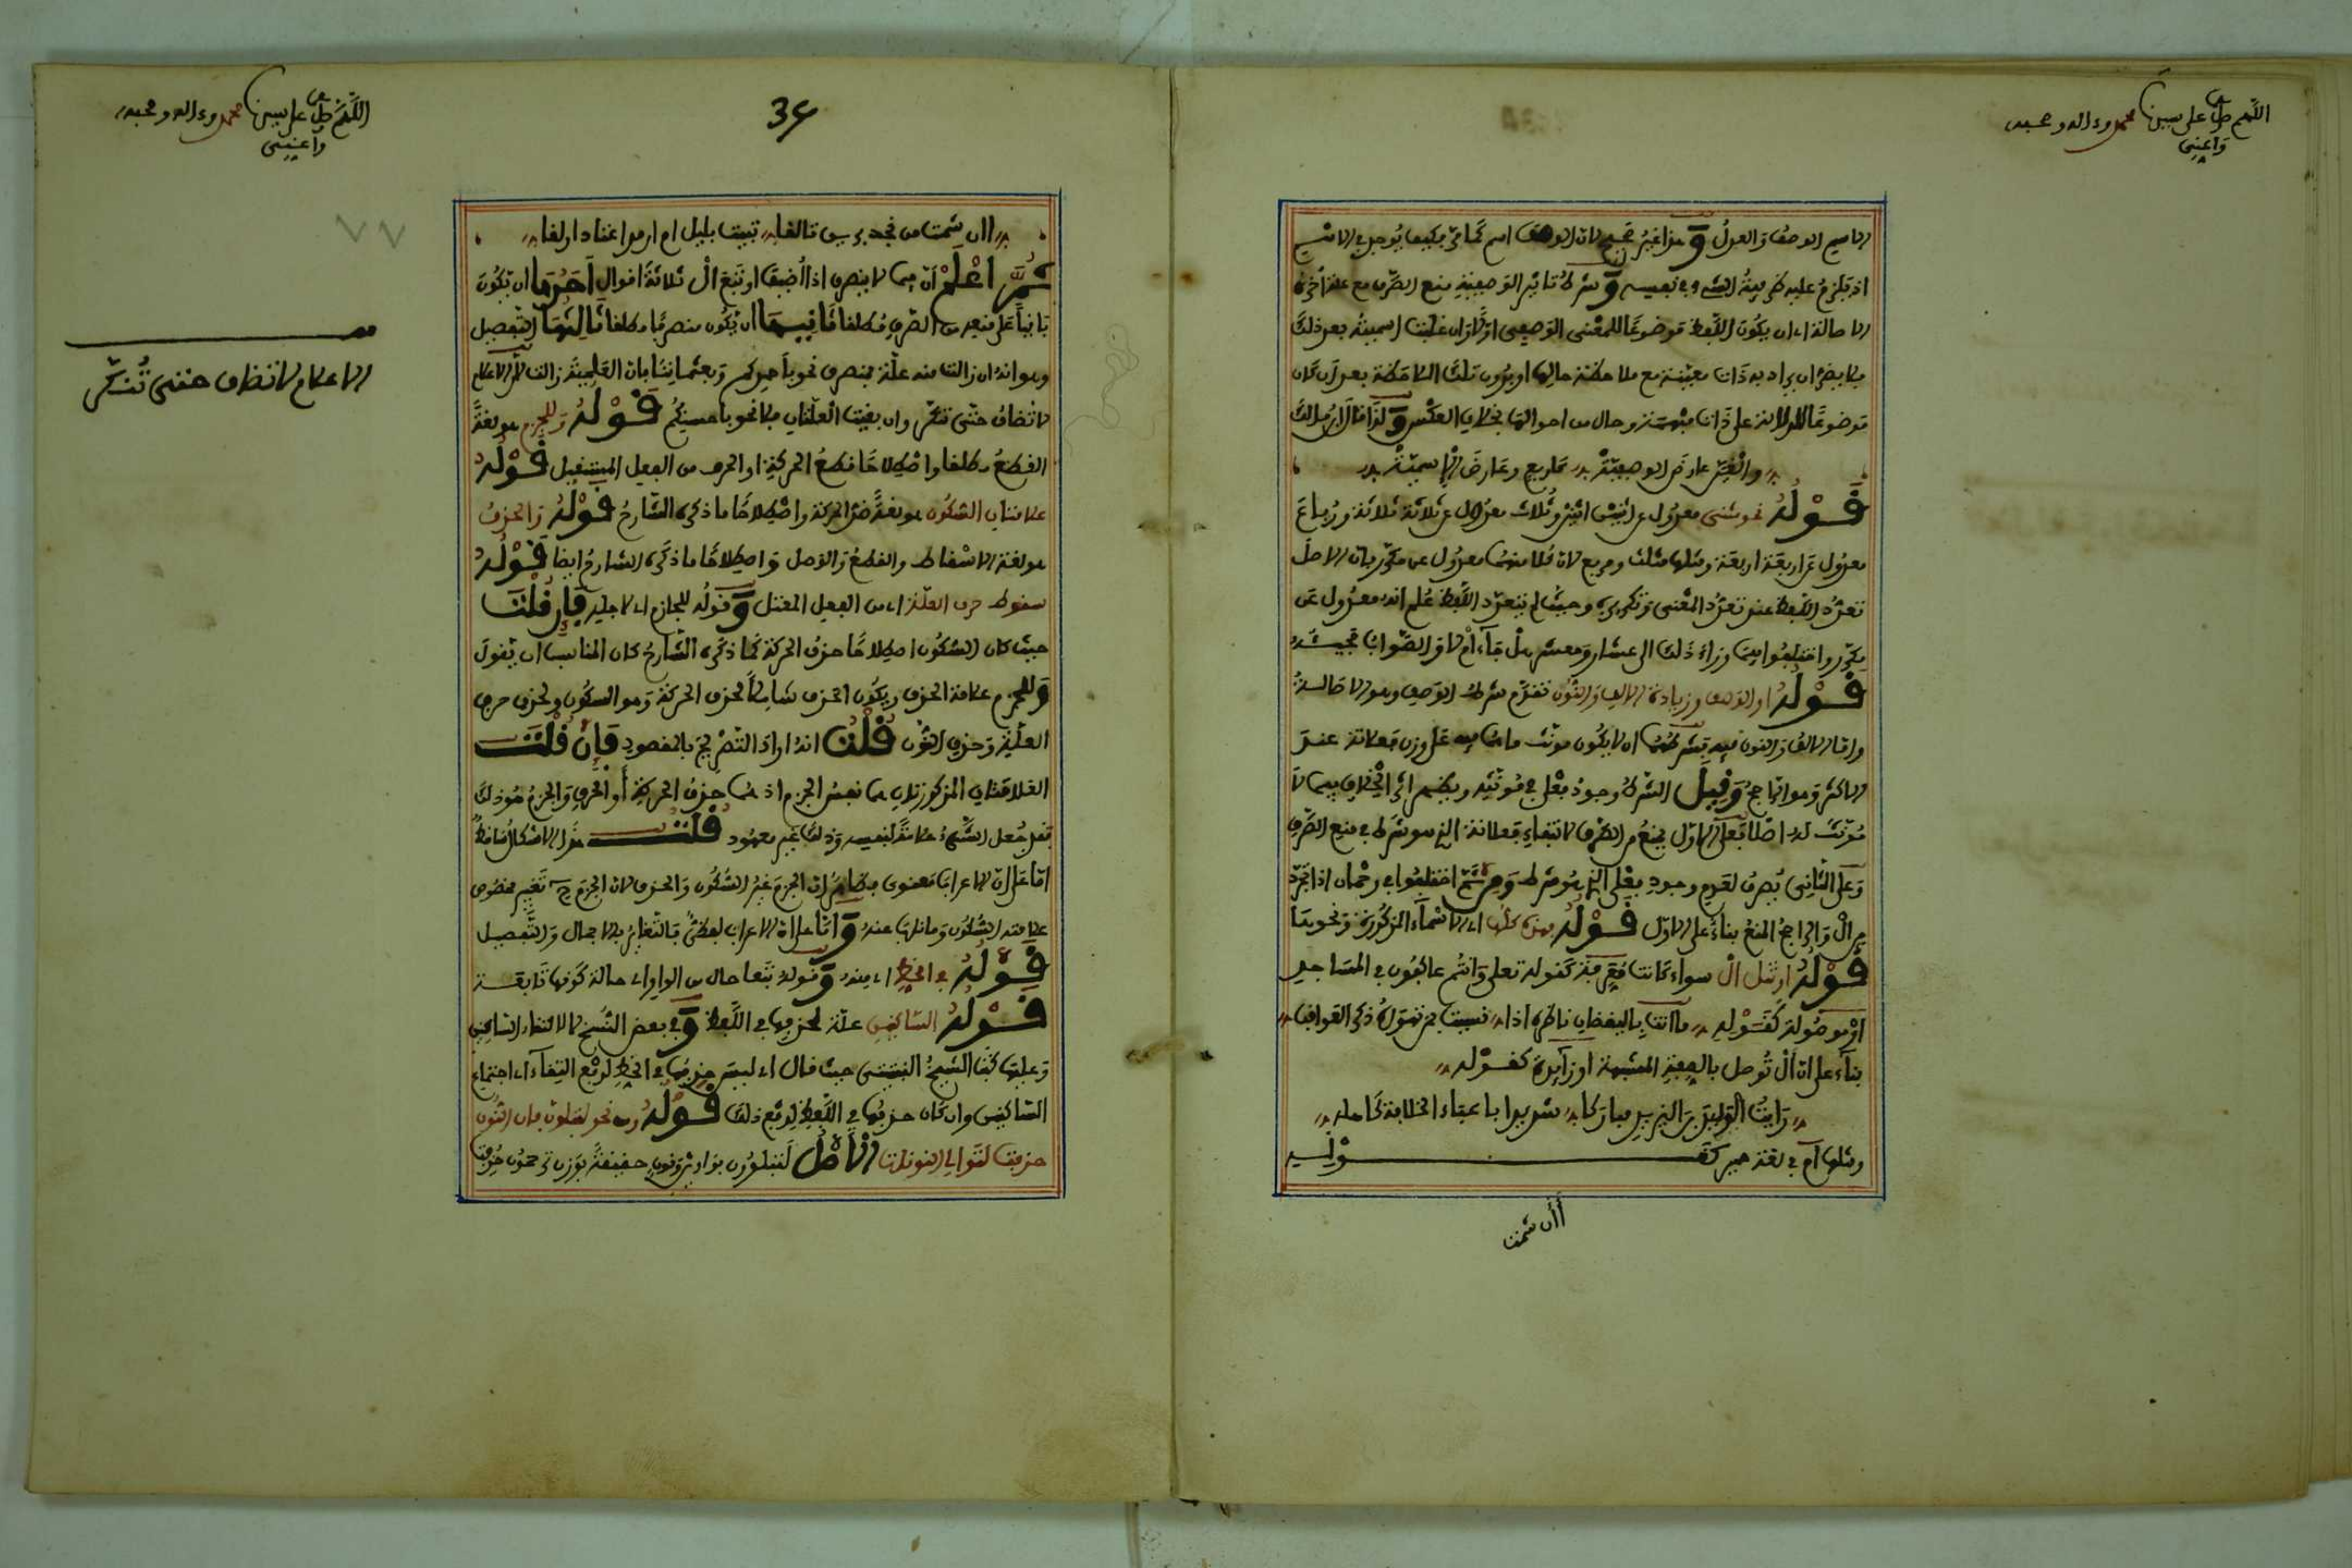 اللهم صل على سيدنا محمد وءاله وصحبه
واغنني
الاسم الوصف والعدل وهذا غير صحيح لان الوصف اسم كما مر فكيف يوجد في الاسم
اذ يلزم عليه ظرفية الشيء في نفسه وشرط تاثير الوصفية منع الصرف مع علة اخرى
الاصالة اي ان يكون اللفظ موضوعا للمعنى الوصفي اولا وان غلبت اسميته بعد ذلك
فلا يضر ان يراد به ذات معينة مع ملاحظة حالها او بدون تلك الملاحظة بعد ان كان
موضوعا للدلالة على ذات مبهمة وحال من احوالها بخلاف العكس ولذا قال ابن مالك
والغين عارض الوصفية كاربع وعارض الاسمية
قوله نحو مثنى معدول عن اثنين اثنين وثلاث معدول عن ثلاثة ثلاثة ورباع
معدول عن اربعة اربعة ومثلها مثلث ومربع لان كلا منهما معدول عن مكرر بان الاصل
تعدد اللفظ عند تعدد المعنى وتكريره وحيث لم يتعدد اللفظ علم انه معدول عن
مكرر واختلفوا فيما وراء ذلك الى عشار ومعشر هل جاء ام لا والصواب مجيئه
قوله او الوصف وزيادة الالف والنون تقدم شرط الوصف وهو الاصالة
واما الالف والنون فيه فشرطهما ان لا يكون مونث ما هما فيه على وزن فعلانة عند
الاكثر وهو الراجح وقيل الشرط وجود فعلى في مونثه ويظهر اثر الخلاف فيما لا
مونث له اصلا فعلى الاول يمنع من الصرف لانتفاء فعلانة الذي هو شرط في منع الصرف
وعلى الثاني يصرف لعدم وجود فعلى الذي هو شرط ومن ثم اختلفوا في رحمان اذا تجرد
من ال والراجح المنع بناء على الاول قوله بهذه كلها اي الاسماء المذكورة ونحوها
قوله او تل ال سواء كانت معرفة كقوله تعلى وانتم عاكفون في المساجد
او موصولة كقوله ما انت باليقظان ناظره اذا نسيت بمن تهواه ذكر العواقب
بناء على ان ال توصل بالصفة المشبهة او زايدة كقوله
رايت الوليد بن اليزيد مباركا شديدا باعباء الخلافة كاهله
ومثلها ام في لغة حمير كقوله
أأن شمت
اللهم صل على سيدنا محمد وءاله وصحبه
واغنني
34
أأن شمت من نجد بريقا تالقا تبيت بليل ام ارمد اعتاد اولقا
ثم اعلم ان فيما لا ينصرف اذا اضيف او تبع ال ثلاثة اقوال احدها ان يكون
باقيا على منعه من الصرف مطلقا ثانيهما ان يكون منصرفا مطلقا ثالثها التفصيل
وهو انه ان زالت منه علة فمنصرف نحو باحمدكم وبعثماننا بان العلمية زالت لان الاعلام
لا تضاف حتى تنكر وان بقيت العلتان فلا نحو باحسنكم قوله وللجزم هو لغة
القطع مطلقا واصطلاحا قطع الحركة او الحرف من الفعل المستقبل قوله
علامتان السكون هو لغة ضد الحركة واصطلاحا ما ذكره الشارح قوله والحذف
هو لغة الاسقاط والقطع والفصل واصطلاحا ما ذكره الشارح ايضا قوله
سقوط حرف العلة اي من الفعل المعتل وقوله للجازم اي لاجله فإن قلت
حيث كان السكون اصطلاحا حذف الحركة كما ذكره الشارح كان المناسب ان يقول
وللجزم علامة الحذف ويكون الحذف شاملا لحذف الحركة وهو السكون ولحذف حرف
العلة وحذف النون قلت انه اراد التصريح بالمقصود فإن قلت
العلامتان المذكورتان هما نفس الجزم اذ هما حذف الحركة أو الحرف والجزم هو ذلك
فقد جعل الشيء علامة لنفسه وذلك غير معهود قلت هذا الاشكال ساقط
اما على ان الاعراب معنوي فظاهر ان الجزم غير السكون والحذف لان الجزم ح تغيير مخصوص
علامته السكون وما ناب عنه واما على ان الاعراب لفظي فالتغاير بالاجمال والتفصيل
قوله في الخط اي منه وقوله تبعا حال من الواو اي حالة كونها تابعة
قوله الساكنين علة لحذفها في اللفظ وفي بعض النسخ لالتقاء الساكنين
وعليها كتب الشيخ حيث قال اي ليس حذفها في الخط لدفع التقاء اي اجتماع
الساكنين وان كان حذفها في اللفظ لدفع ذلك قوله ومن نحو لتبلون فان النون
حذفت لتوالي النونات الاصل لتبلوون بواوين ونون خفيفة بوزن حذفت
الاعلام لا تضاف حتى تنكر